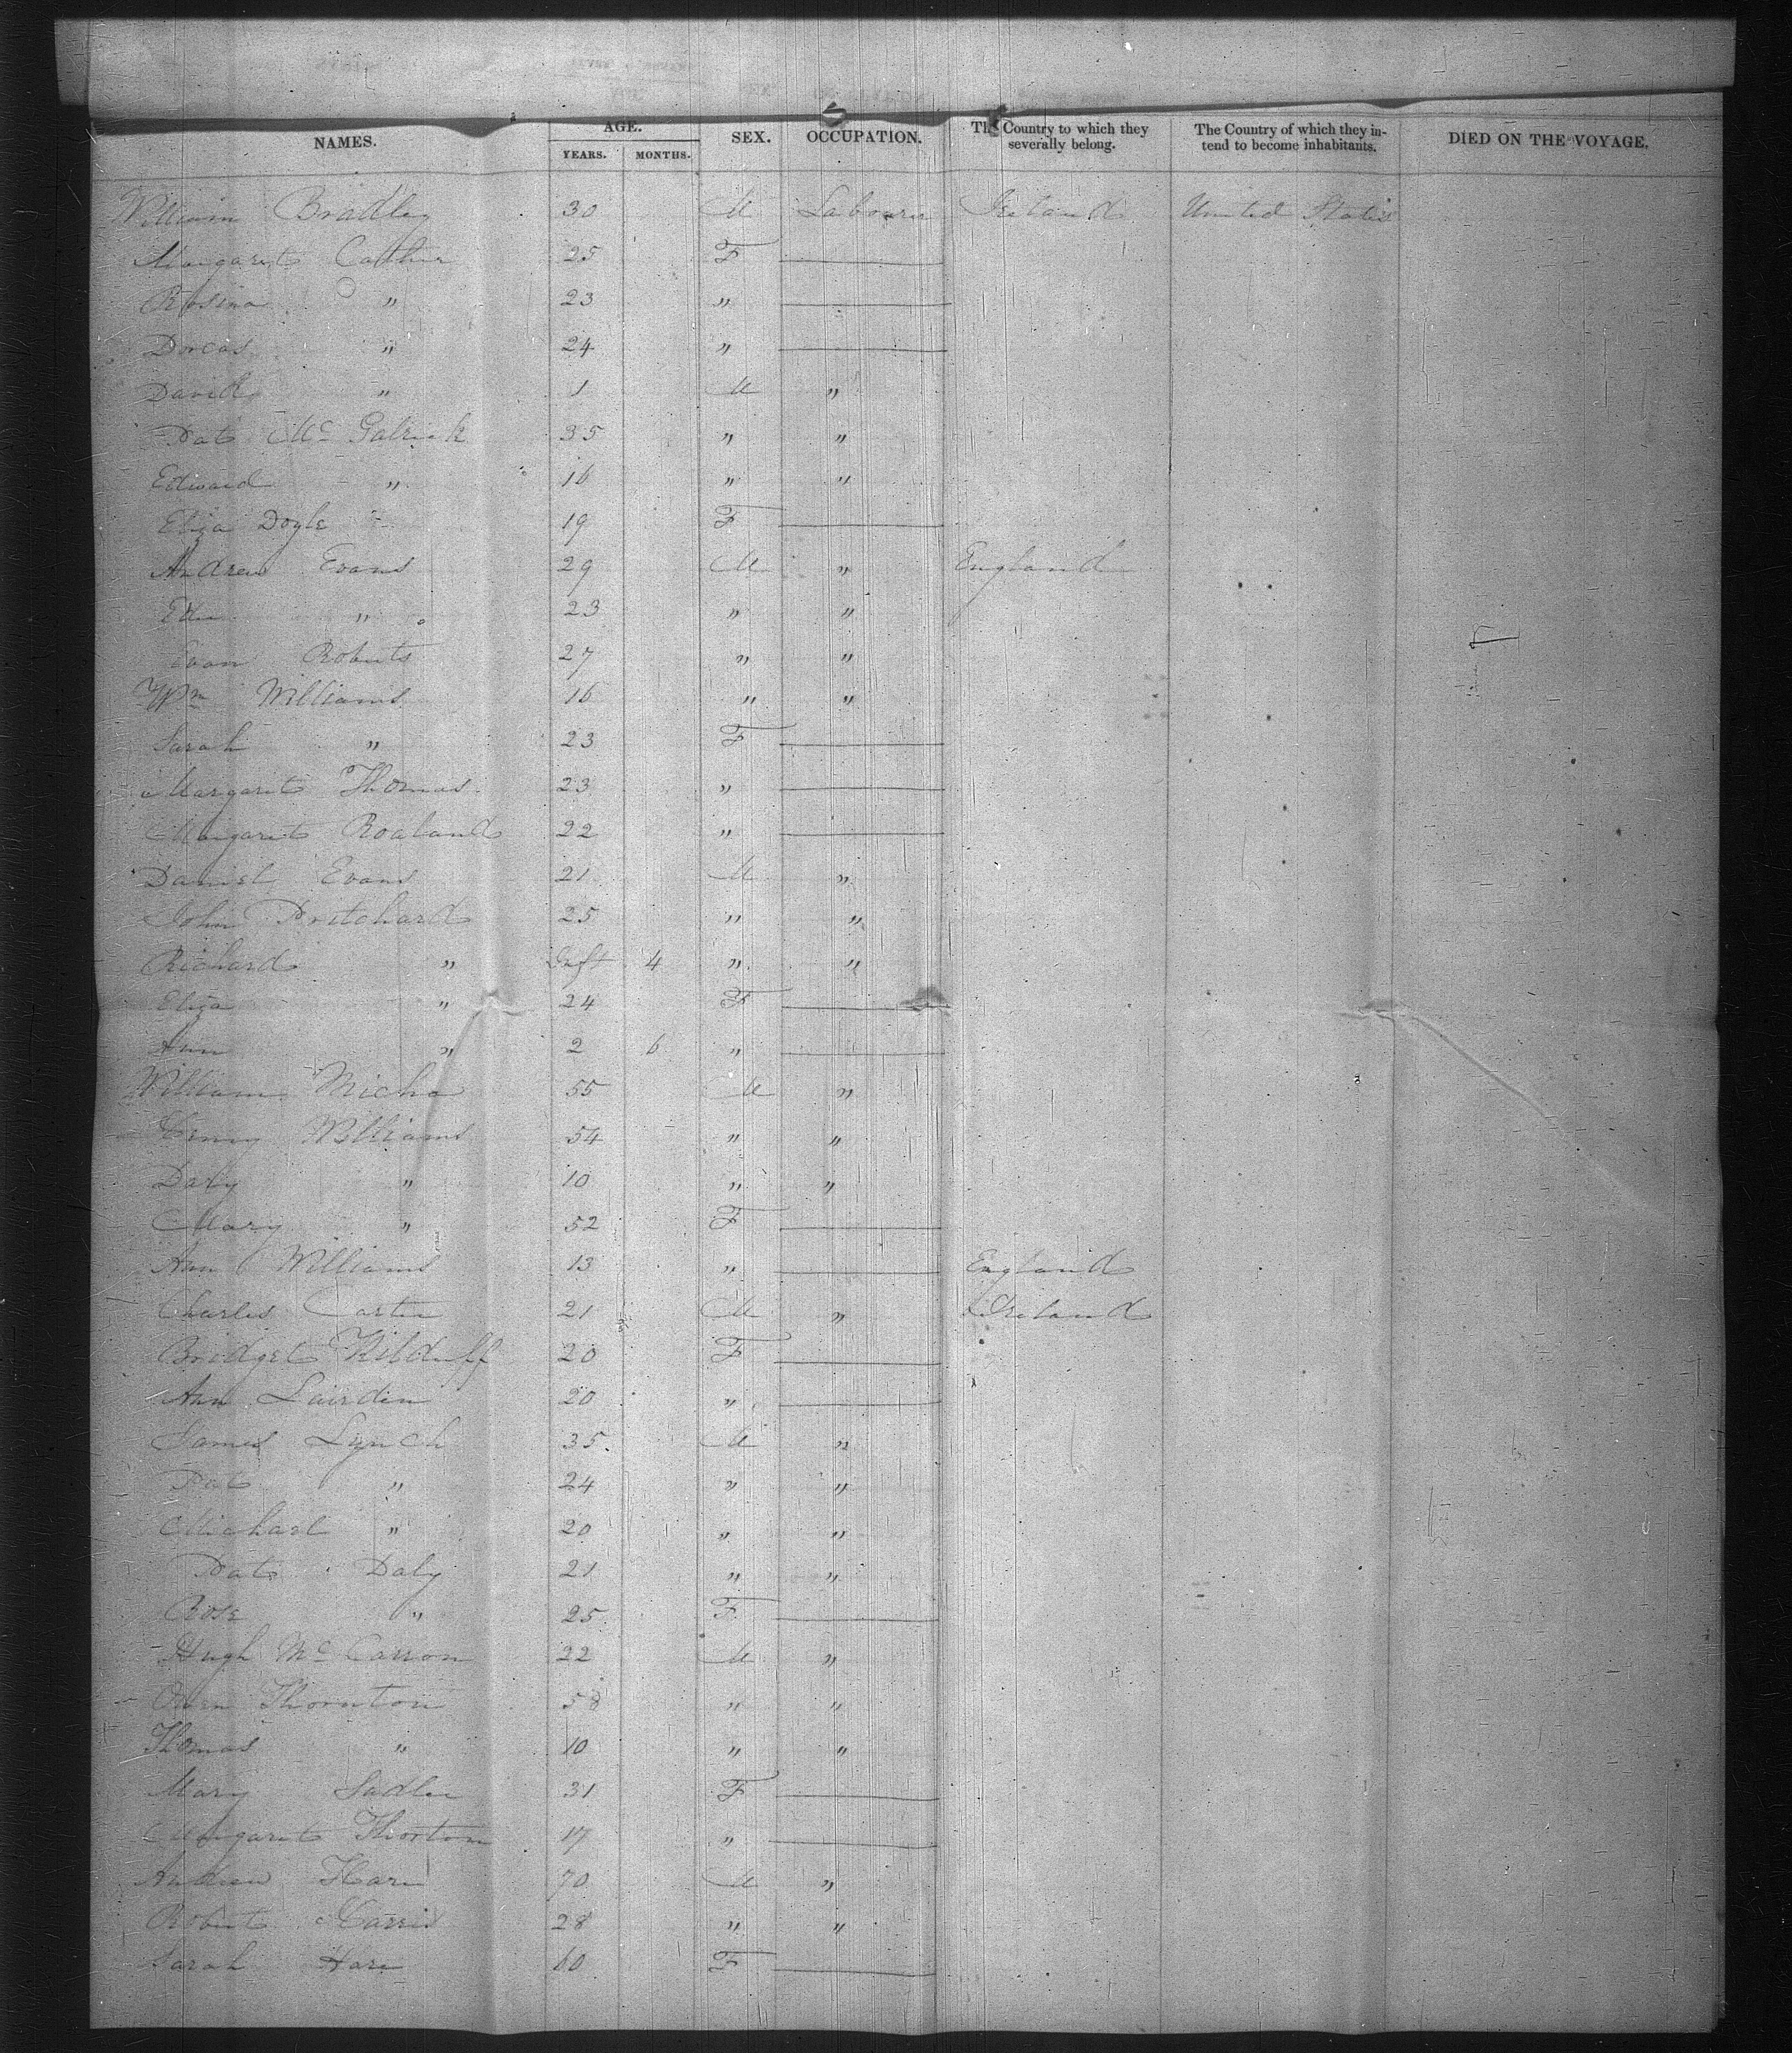 NAMES. AGE. YEARS. MONTHS. SEX. OCCUPATION. The Country to which they severally belong. The Country of which they intend to become inhabitants. DIED ON THE VOYAGE.
William Bradley 30 M Labourer Ireland United States
Margaret 25 F
Rosina " 23 "
Dorcas " 24 "
David " 1 M "
Pat Mc Galrick 35 " "
Edward " 16 " "
Eliza Doyle 19 F
Andrew Evans 29 M " England
Edw " 23 " "
Evan Roberts 27 " "
Wm Williams 16 " "
Sarah " 23 F
Margaret Thomas 23 "
Margaret Roaland 22 "
Daniel Evans 21 M "
John Pritchard 25 " "
Richard " Inft 4 " "
Eliza " 24 F
Ann " 2 6 "
William Micha 55 M "
Henry Williams 54 " "
" 10 " "
Mary " 52 F
Ann Williams 13 " England
Charles Carter 21 M " Ireland
Bridget Kilduff 20 F
Ann 20 "
James Lynch 35 M "
Pat " 24 " "
Michael " 20 " "
Pat Daly 21 " "
Rose " 25 F
Hugh Mc Carron 22 M "
Owen Thornton 58 " "
Thomas " 10 " "
Mary Sadler 31 F
Margaret Thorton 17 "
Andrew Hare 70 M "
Robert Harris 28 " "
Sarah Hare 60 F